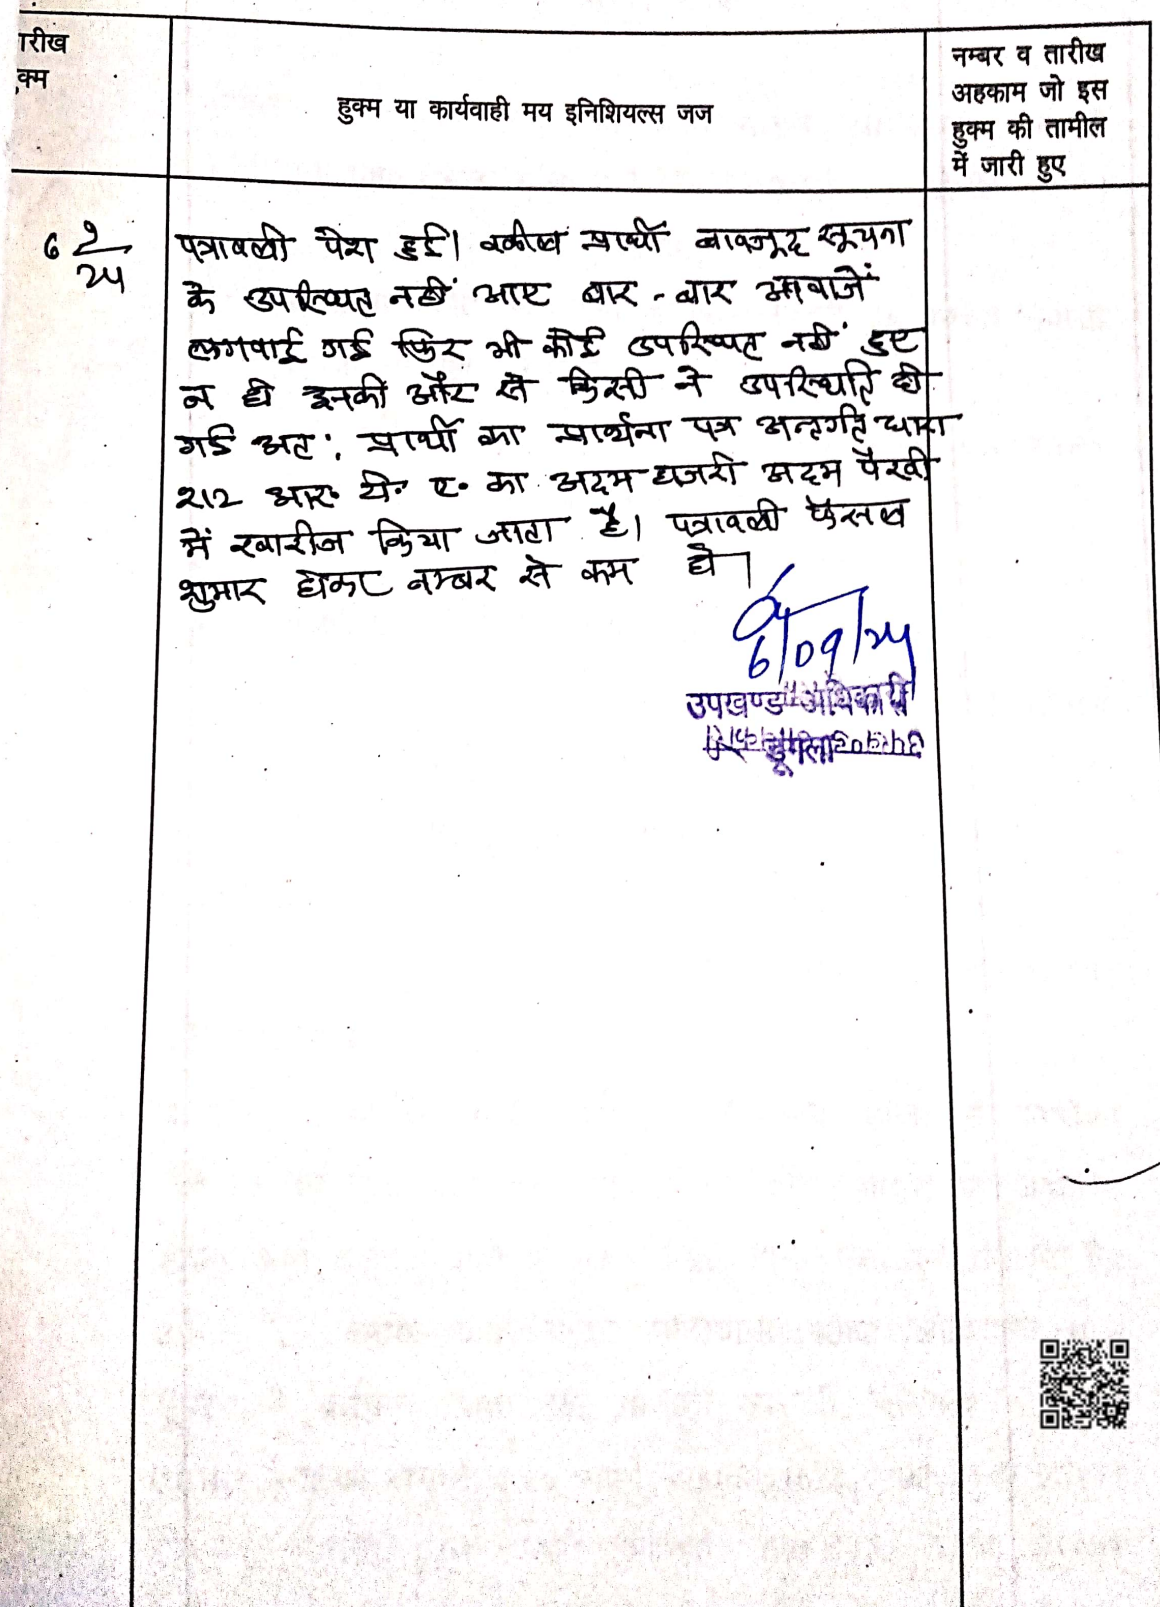 तारीख
हुक्म
हुक्म या कार्यवाही मय इनिशियल्स जज
नम्बर व तारीख
अहकाम जो इस
हुक्म की तामील
में जारी हुए
6 9/24
पत्रावली पेश हुई। वकील प्रार्थी बावजूद सूचना
के उपस्थित नहीं आए बार-बार आवाजें
लगवाई गई फिर भी कोई उपस्थित नहीं हुए
न ही इनकी और से किसी ने उपस्थिति दी
गई अतः प्रार्थी का प्रार्थना पत्र अन्तर्गत धारा
212 आर. टी. ए. का अदम हाजरी अदम पैरवी
में खारीज किया जाता है। पत्रावली फैसल
शुमार होकर नम्बर से कम हो।
6/09/24
उपखण्ड अधिकारी
डूंगला